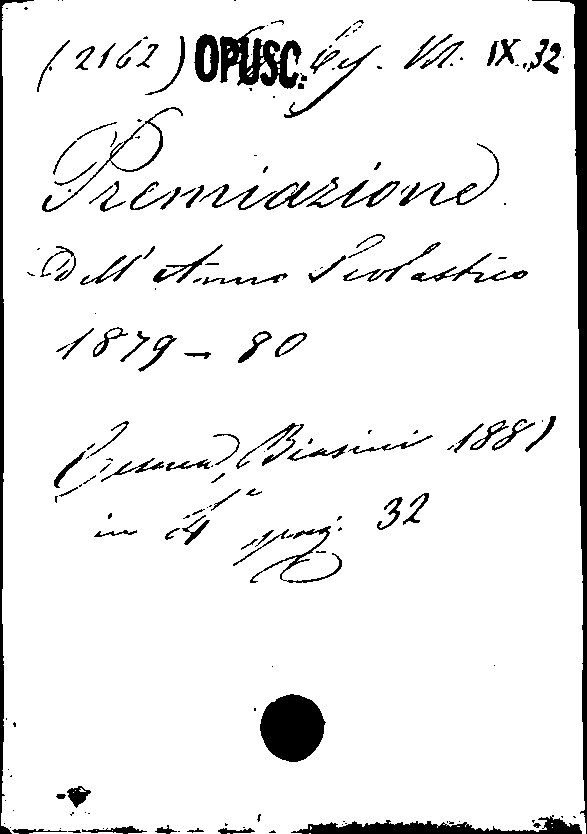 (2162) OPUSC. Ces. VII. IX.32
Premiazione
Dell' Anno Scolastico
1879 - 80
Cesena, Biasini 1881
in 4° pag. 32